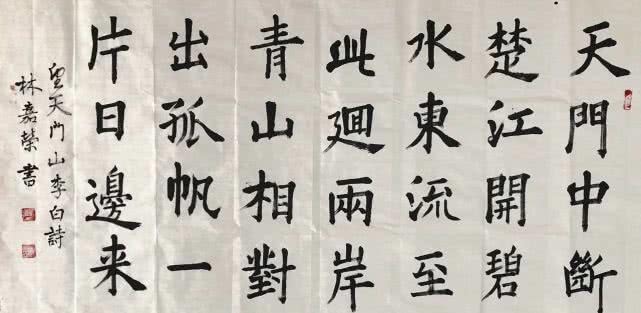 天門中斷
楚江開碧
水東流至
此廻兩岸
青山相對
出孤帆一
片日邊来
望天門山李白詩
林嘉榮書